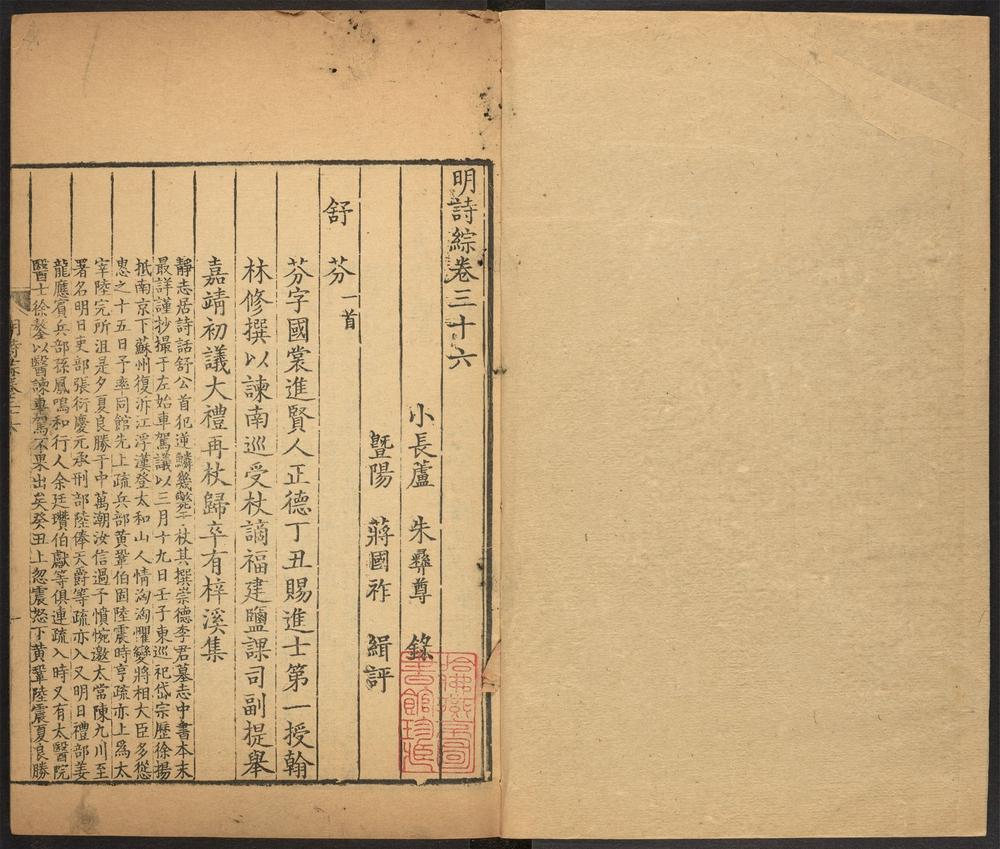 明詩綜卷三十六
小長蘆 朱彝尊 錄
曁陽 蔣國祚 緝評
舒 芬 一首
芬字國裳進賢人正德丁丑賜進士第一授翰
林修撰以諫南巡受杖謫福建鹽課司副提舉
嘉靖初議大禮再杖歸卒有梓溪集
靜志居詩話舒公首犯逆鱗幾斃一杖其撰崇德李君墓志中書本末
最詳謹抄撮于左始車駕議以三月十九日壬子東巡祀岱宗歷徐揚
抵南京下蘇州復泝江浮漢登太和山人情洶洶懼變將相大臣多從
惠之十五日予率同館先上疏兵部黃鞏伯固陸震時亨疏亦上為太
宰陸完所沮是夕夏良勝于中萬潮汝信過予憤惋邀太當陳九川至
署名明日吏部張衍慶元承刑部陸俸天爵等疏亦入又明日禮部姜
龍應賓兵部孫鳳鳴和行人余廷瓚伯獻等俱連疏入時又有太醫院
醫士徐鏊以醫諫車駕不果出矣癸丑上忽震怒下黃鞏陸震夏良勝
明詩綜卷三十六
一